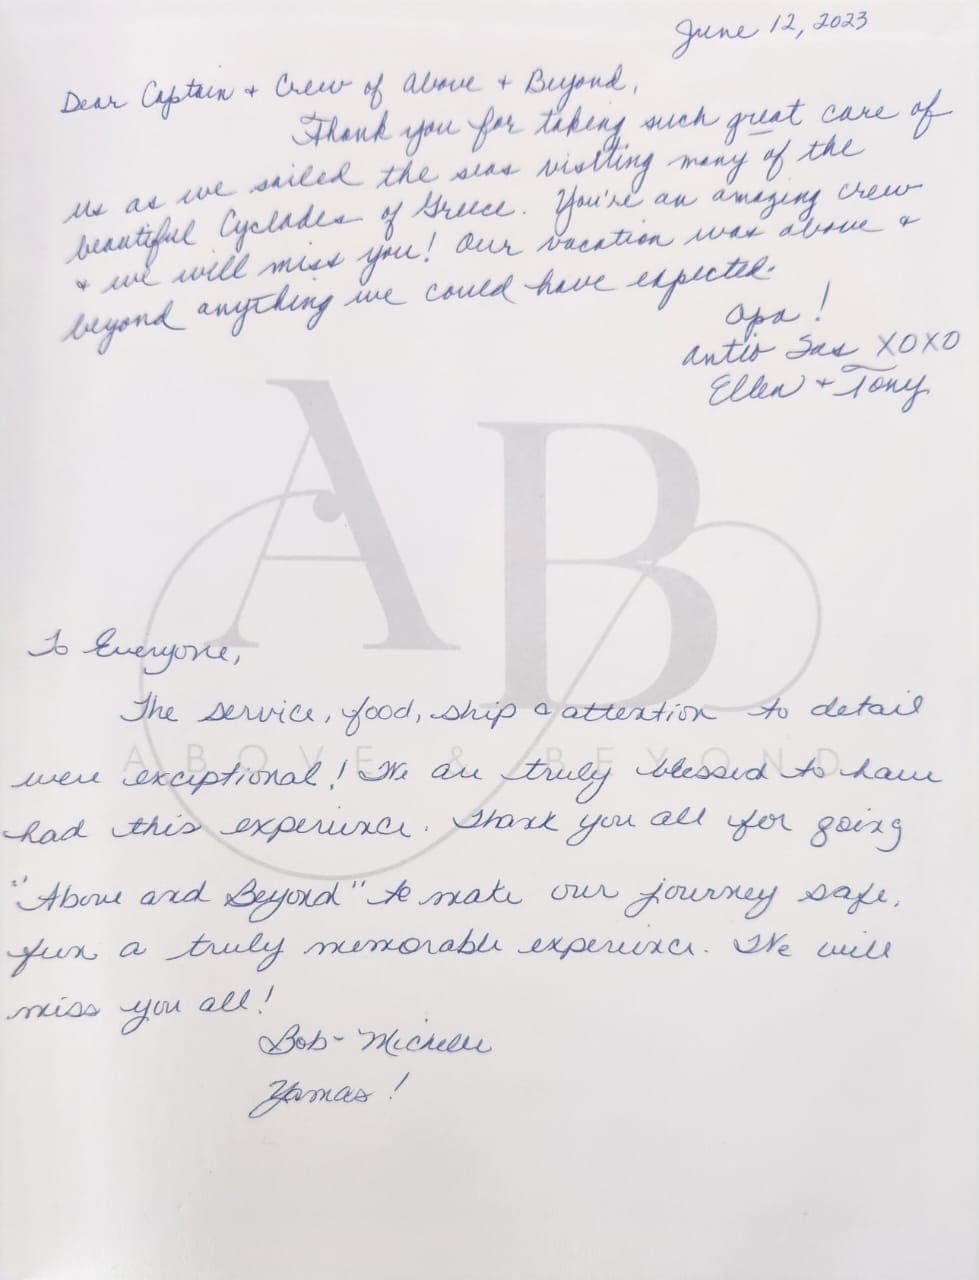 June 12, 2023
Dear Captain + Crew of Above + Beyond,
Thank you for taking such great care of
us as we sailed the seas visiting many of the
beautiful Cyclades of Greece. You're an amazing crew
+ we will miss you! Our vacation was above +
beyond anything we could have expected.
Opa!
Antio Sas XOXO
Ellen + Tony
AB
To Everyone,
The service, food, ship & attention to detail
ABOVE & BEYOND
were exceptional! We are truly blessed to have
had this experience. Thank you all for going
"Above and Beyond" to make our journey safe,
fun & truly memorable experience. We will
miss you all!
Bob - Michelle
Yamas!